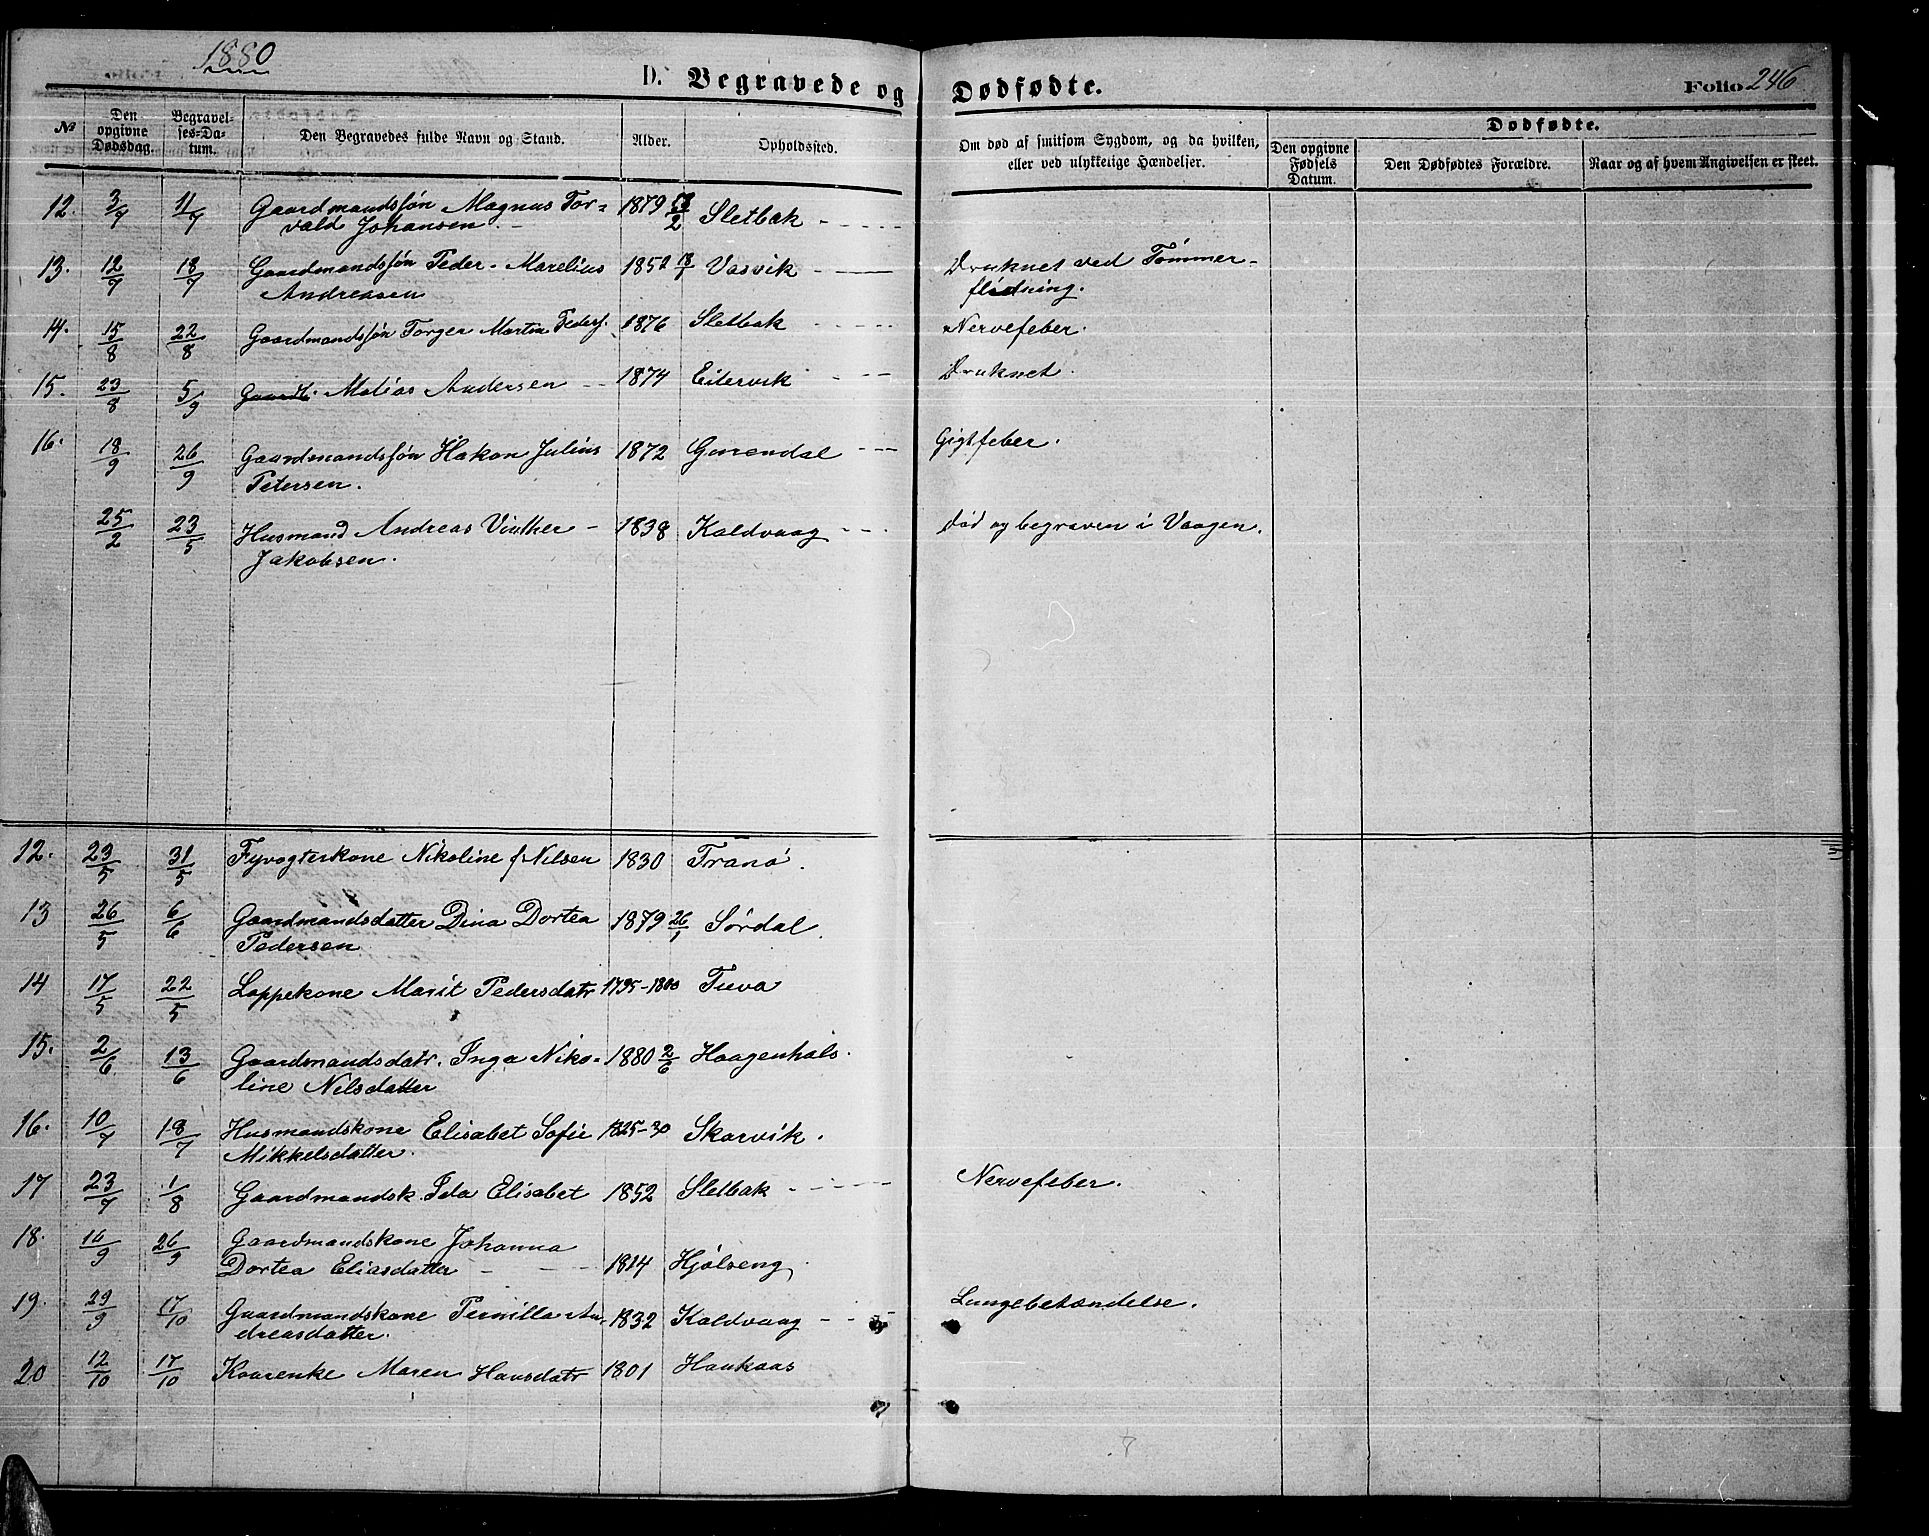 1880
D. Begravede og Dødfødte.
Folio 246
No Den opgivne Dødsdag. Begravelses-Datum. Den Begravedes fulde Navn og Stand. Alder. Opholdssted. Om død af smitsom Sygdom, og da hvilken, eller ved ulykkelige Hændelser. Dødfødte. Den opgivne Fødsels Datum. Den Dødfødtes Forældre. Naar og af hvem Angivelsen er skeet.
12. 3/7 11/7 Gaardmandssøn Magnus Tor- 1879 /2 Sletbak
vald Johansen
13. 12/7 18/7 Gaardmandssøn Peder Marelius 1852 18/1 Vasvik Druknet ved Tømmer-
Andreasen flødning.
14. 15/8 22/8 Gaardmandssøn Torger Martin Peders. 1876 Sletbak Nervefeber.
15. 23/8 5/9 Matias Andersen 1874 Eitervik Druknet.
16. 18/9 26/9 Gaardmandssøn Hakon Julius 1872 Gurendal Gigtfeber.
Petersen.
25/2 23/5 Husmand Andreas Vinther 1838 Kaldvaag død og begraven i Vaagen.
Jakobsen.
12. 23/5 31/5 Fyrvogterkone Nikoline f Nilsen 1830 Tranø.
13 26/5 6/6 Gaardmandsdatter Dina Dortea 1879 26/1 Sørdal.
Pedersen
14 17/5 22/5 Lappekone Marit Pedersdatr 1795-1800 Tuva
15. 2/6 13/6 Gaardmandsdatr. Inga Niko- 1880 2/6 Haagenhals.
line Nilsdatter
16. 10/7 18/7 Husmandskone Elisabet Sofie 1825-30 Skarvik.
Mikkelsdatter.
17 23/7 1/8 Gaardmandsk. Ida Elisabet 1852 Sletbak Nervefeber.
18. 16/9 26/9 Gaardmandskone Johanna
Dortea Eliasdatter 1814 Hjelseng
19. 29/9 17/10 Gaardmandskone Pernilla An- 1832 Kaldvaag Lungebetændelse.
dreasdatter.
20 12/10 17/10 Kaarenke Maren Hansdatr 1801 Haukaas